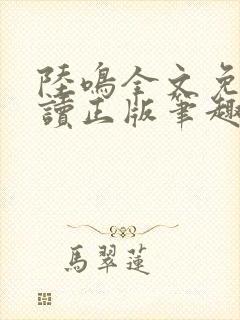 陸鳴全文免
讀正版筆趣
馬翠蓮